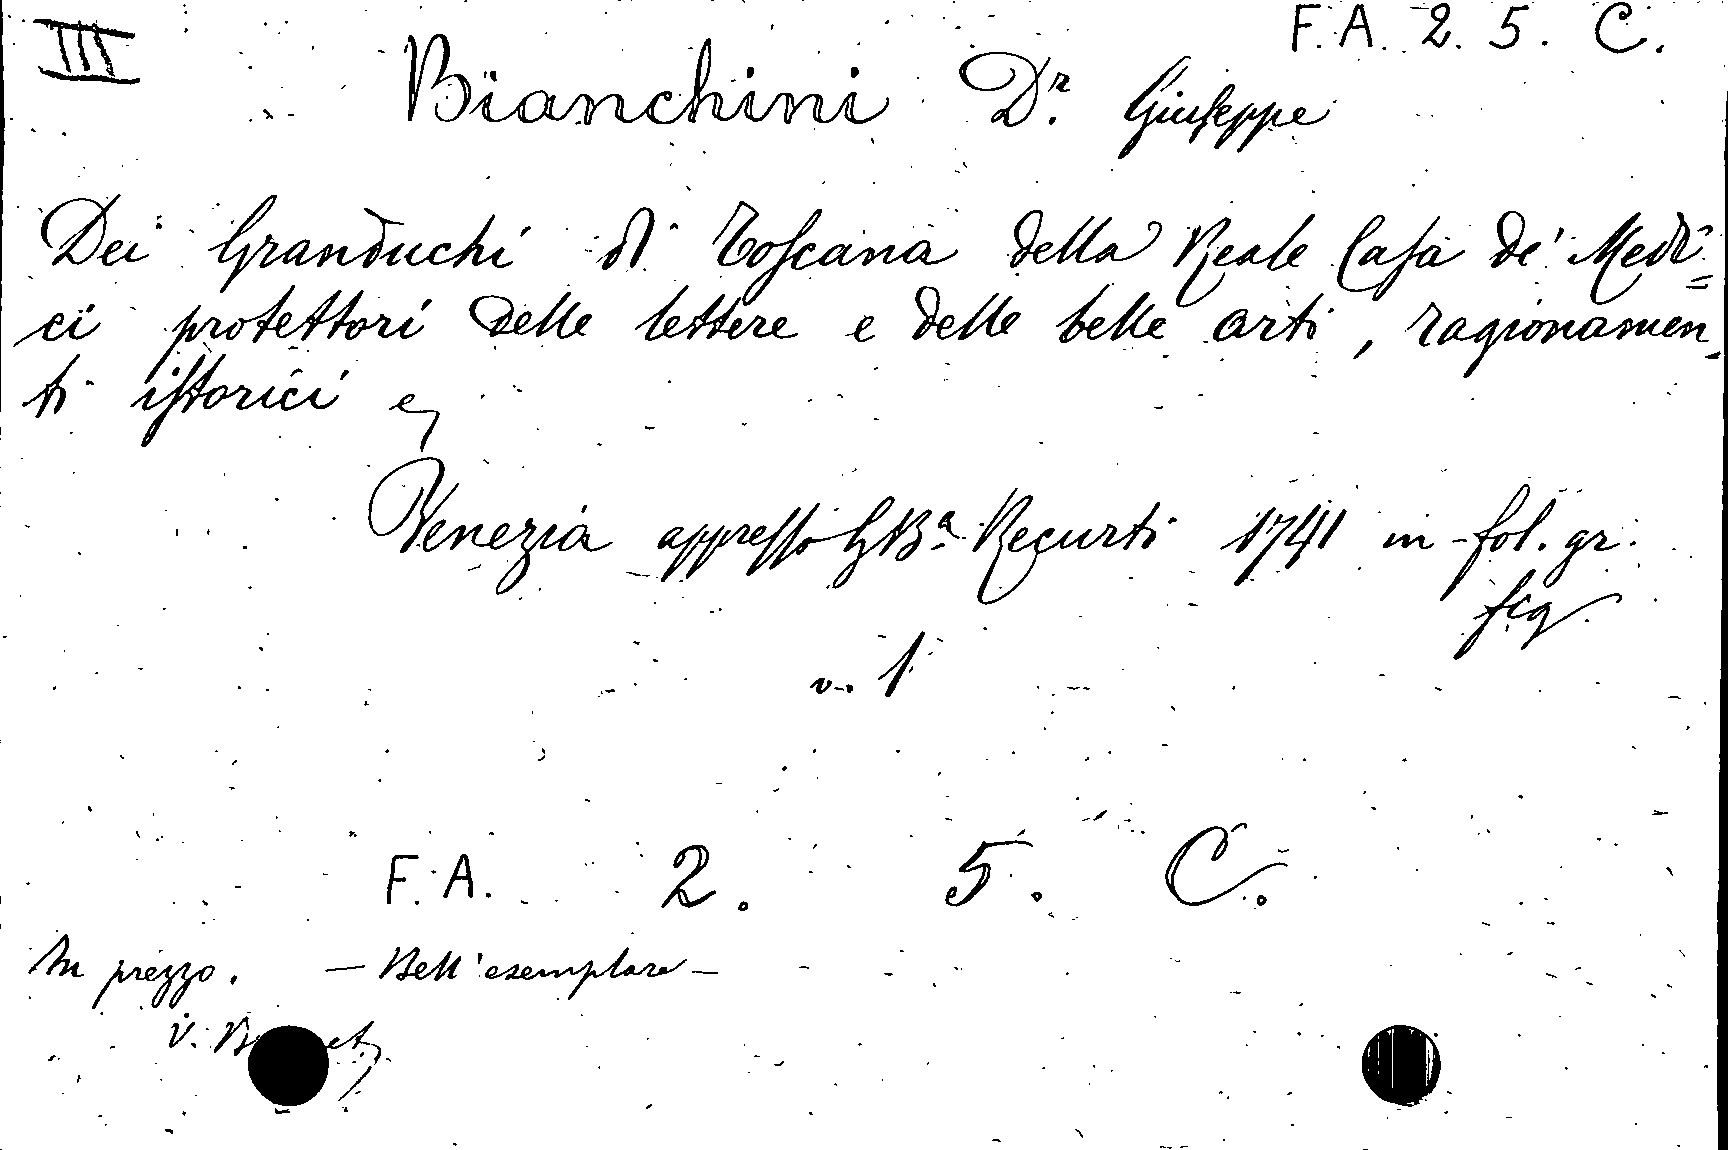 III
F. A. 2. 5. C.
Bianchini Dr. Giuseppe
Dei Granduchi di Toscana della Reale Casa de' Medi=
ci protettori delle lettere e delle belle arti, ragionamen
ti istorici
Venezia appresso G. Ba. Recurti 1741 in fol. gr.
fig.
v. 1
F. A. 2. 5. C.
In prezzo. — Bell'esemplare —
V.